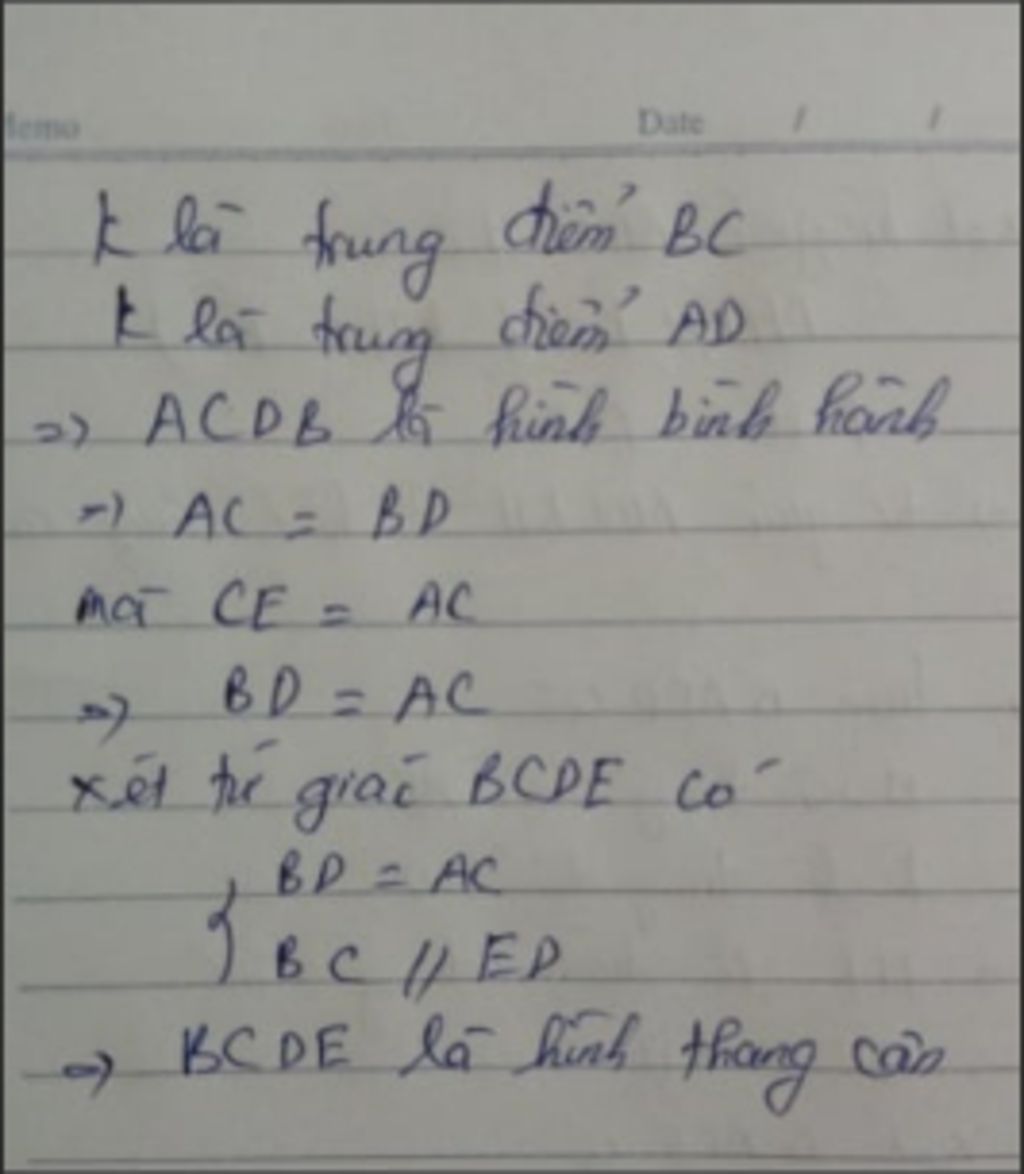 emo Date / /
K là trung điểm BC
K là trung điểm AD
=> ACDB là hình bình hành
=> AC = BD
mà CE = AC
=> BD = AC
xét tứ giác BCDE có
{ BD = AC
BC // ED
=> BCDE là hình thang cân